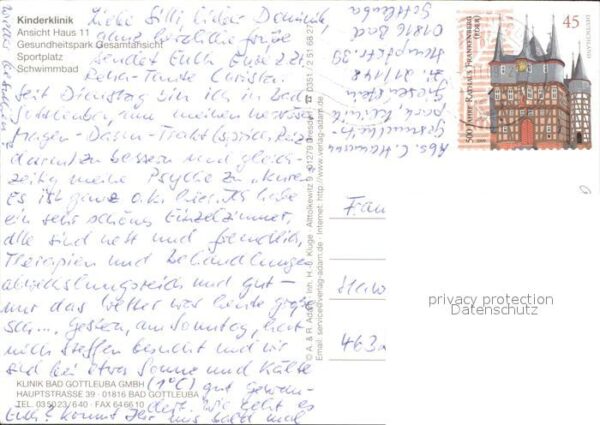 Kinderklinik
Ansicht Haus 11
Gesundheitspark Gesamtansicht
Sportplatz
Schwimmbad
Liebe Silli, lieber Dominik,
ganz herzliche Grüße
sendet Euch Eure z.Zt.
Reha-Tante Christa.
Seit Dienstag bin ich in Bad
Gottleuba, um meinen nervösen
Magen-Darm-Trakt
darin zu bessern und gleich-
zeitig meine Psyche zu "kuren".
Es ist ganz o.k. hier. Ich habe
ein sehr schönes Einzelzimmer,
alle sind nett und freundlich,
Therapien und Behandlungen
abwechslungsreich und gut –
nur das Wetter war heute große
Sch... Gestern, am Sonntag, hat
mich Steffen besucht und wir
sind bei etwas Sonne und Kälte
(1°C) gut gewan-
dert. Wie geht es
Euch? Kommt Ihr uns bald mal
KLINIK BAD GOTTLEUBA GMBH
HAUPTSTRASSE 39 · 01816 BAD GOTTLEUBA
TEL. 035023/640 · FAX 646610
© A. & R. Adam, Inh. H.-J. Kluge · Altkolkwitz 9 · 01279 Dresden · ☎ 0351 / 2 51 68 27
Email: service@verlag-adam.de · Internet: http://www.verlag-adam.de
Abs. C.
Gesundheits-
park, Klinik
Giesenstein
Zi. 21/148
Hauptstr. 39
01816 Bad
Gottleuba
45
DEUTSCHLAND
500 JAHRE RATHAUS FRANKENBERG
(EDER)
Frau
463
privacy protection
Datenschutz